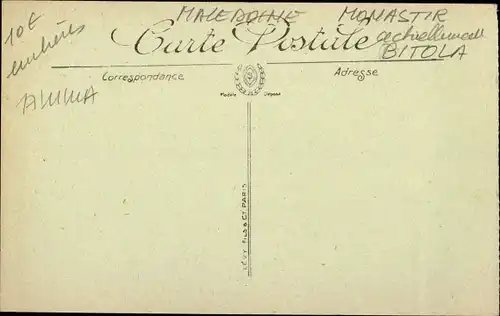 MACEDOINE MONASTIR
10€
Carte Postale
actuellement
BITOLA
Correspondance
Adresse
Modèle Déposé
LÉVY FILS & Cie PARIS